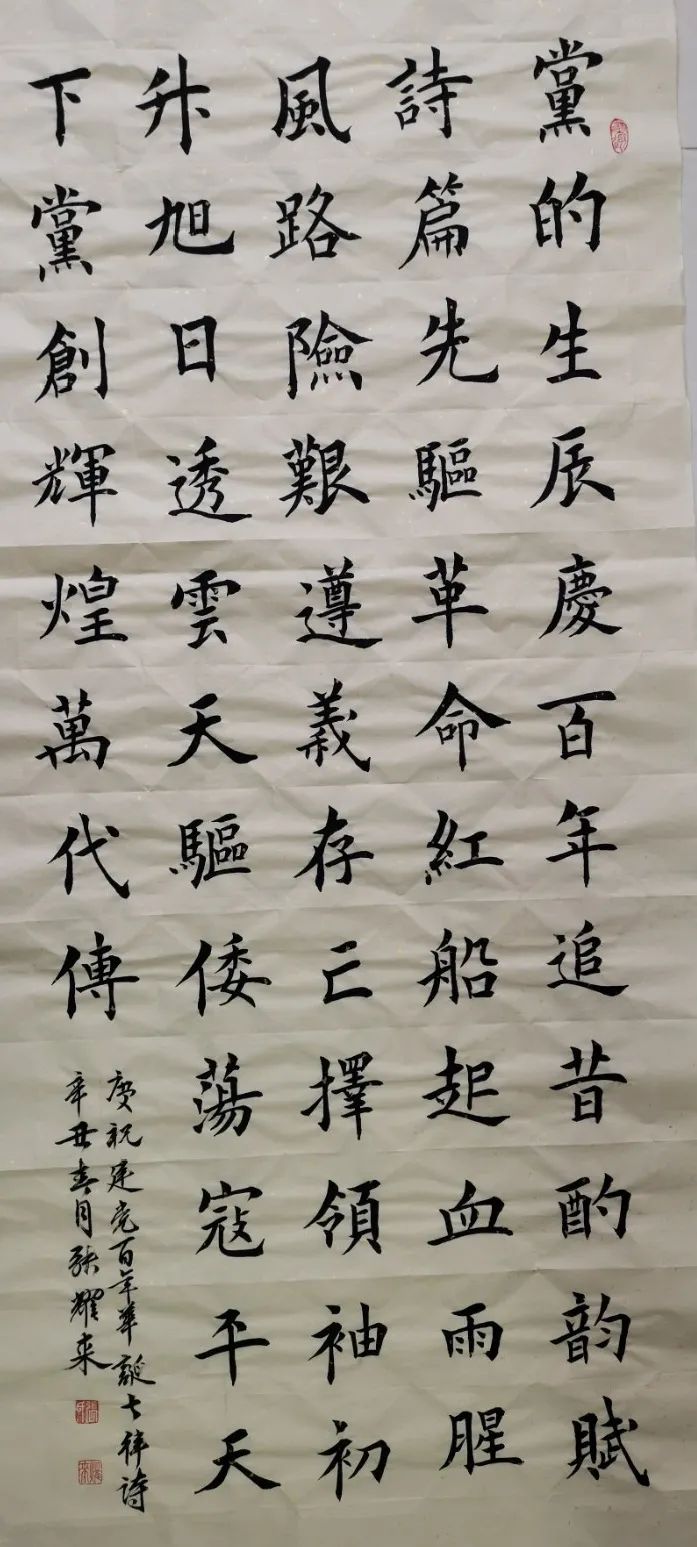 黨的生辰慶百年追昔酌韵賦
詩篇先驅革命紅船起血雨腥
風路險艱遵義存亡擇領袖初
升旭日透雲天驅倭蕩寇平天
下黨創輝煌萬代傳
庆祝建党百年華誕七律诗
辛丑春月张耀来